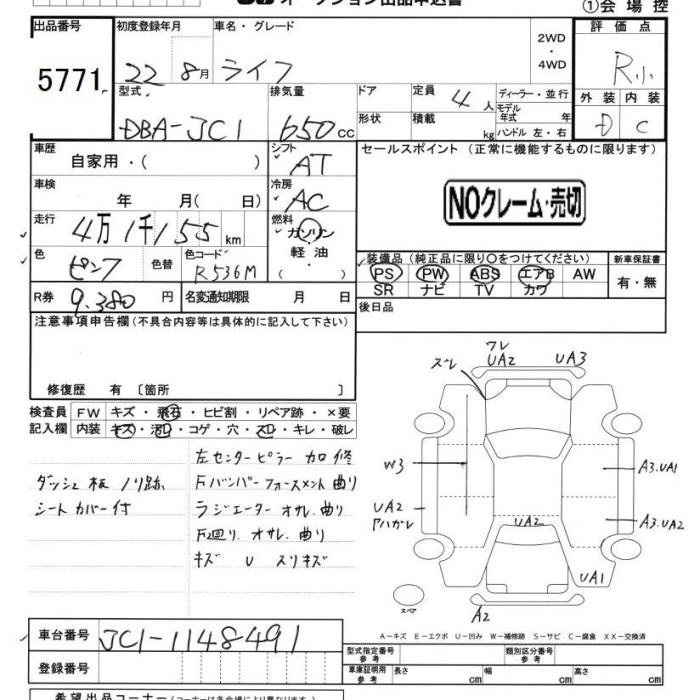 オークション出品申込書
①会場控
出品番号 初度登録年月 車名・グレード 評価点
5771 22 8月 ライフ 2WD・4WD R小
型式 排気量 ドア 定員 ディーラー・並行 外装 内装
DBA-JC1 650cc 4人 モデル年式 年 D C
形状 積載 kg ハンドル 左・右
車歴 シフト セールスポイント (正常に機能するものに限ります)
自家用・( ) AT
車検 冷房 NOクレーム・売切
年 月( 日) AC
走行 燃料
4万1千155km ガソリン・軽油・( )
色 色替 色コード 装備品 (純正品に限り○をつけてください) 新車保証書
ピンク R536M PS PW ABS エアB AW 有・無
SR ナビ TV カワ
R券 9,380円 名変通知期限 月 日 後日品
注意事項申告欄 (不具合内容等は具体的に記入して下さい)
修復歴 有 [箇所 ]
検査員 FW キズ・飛石・ヒビ割・リペア跡・×要
記入欄 内装 キズ・汚れ・コゲ・穴・スレ・キレ・破レ
左センターピラー 加修
ダッシュ板 ノリ跡 Fバンパーフォースメント曲り
シートカバー付 ラジエーター オサレ曲り
F2回り オサレ 曲り
キズ U スリキズ
ズレ ワレ UA2 UA3
W3 A3.UA1
UA2 アハガレ UA2 A3.UA2
UA1
スペア A2
A-キズ E-エクボ U-凹み W-補修跡 S-サビ C-腐食 XX-交換済
車台番号 JC1-1148491
型式指定番号 参考 類別区分番号 参考
登録番号 車庫証明用 参考 長さ cm 幅 cm 高さ cm
希望出品コーナー (コーナーは各会場により異なります)